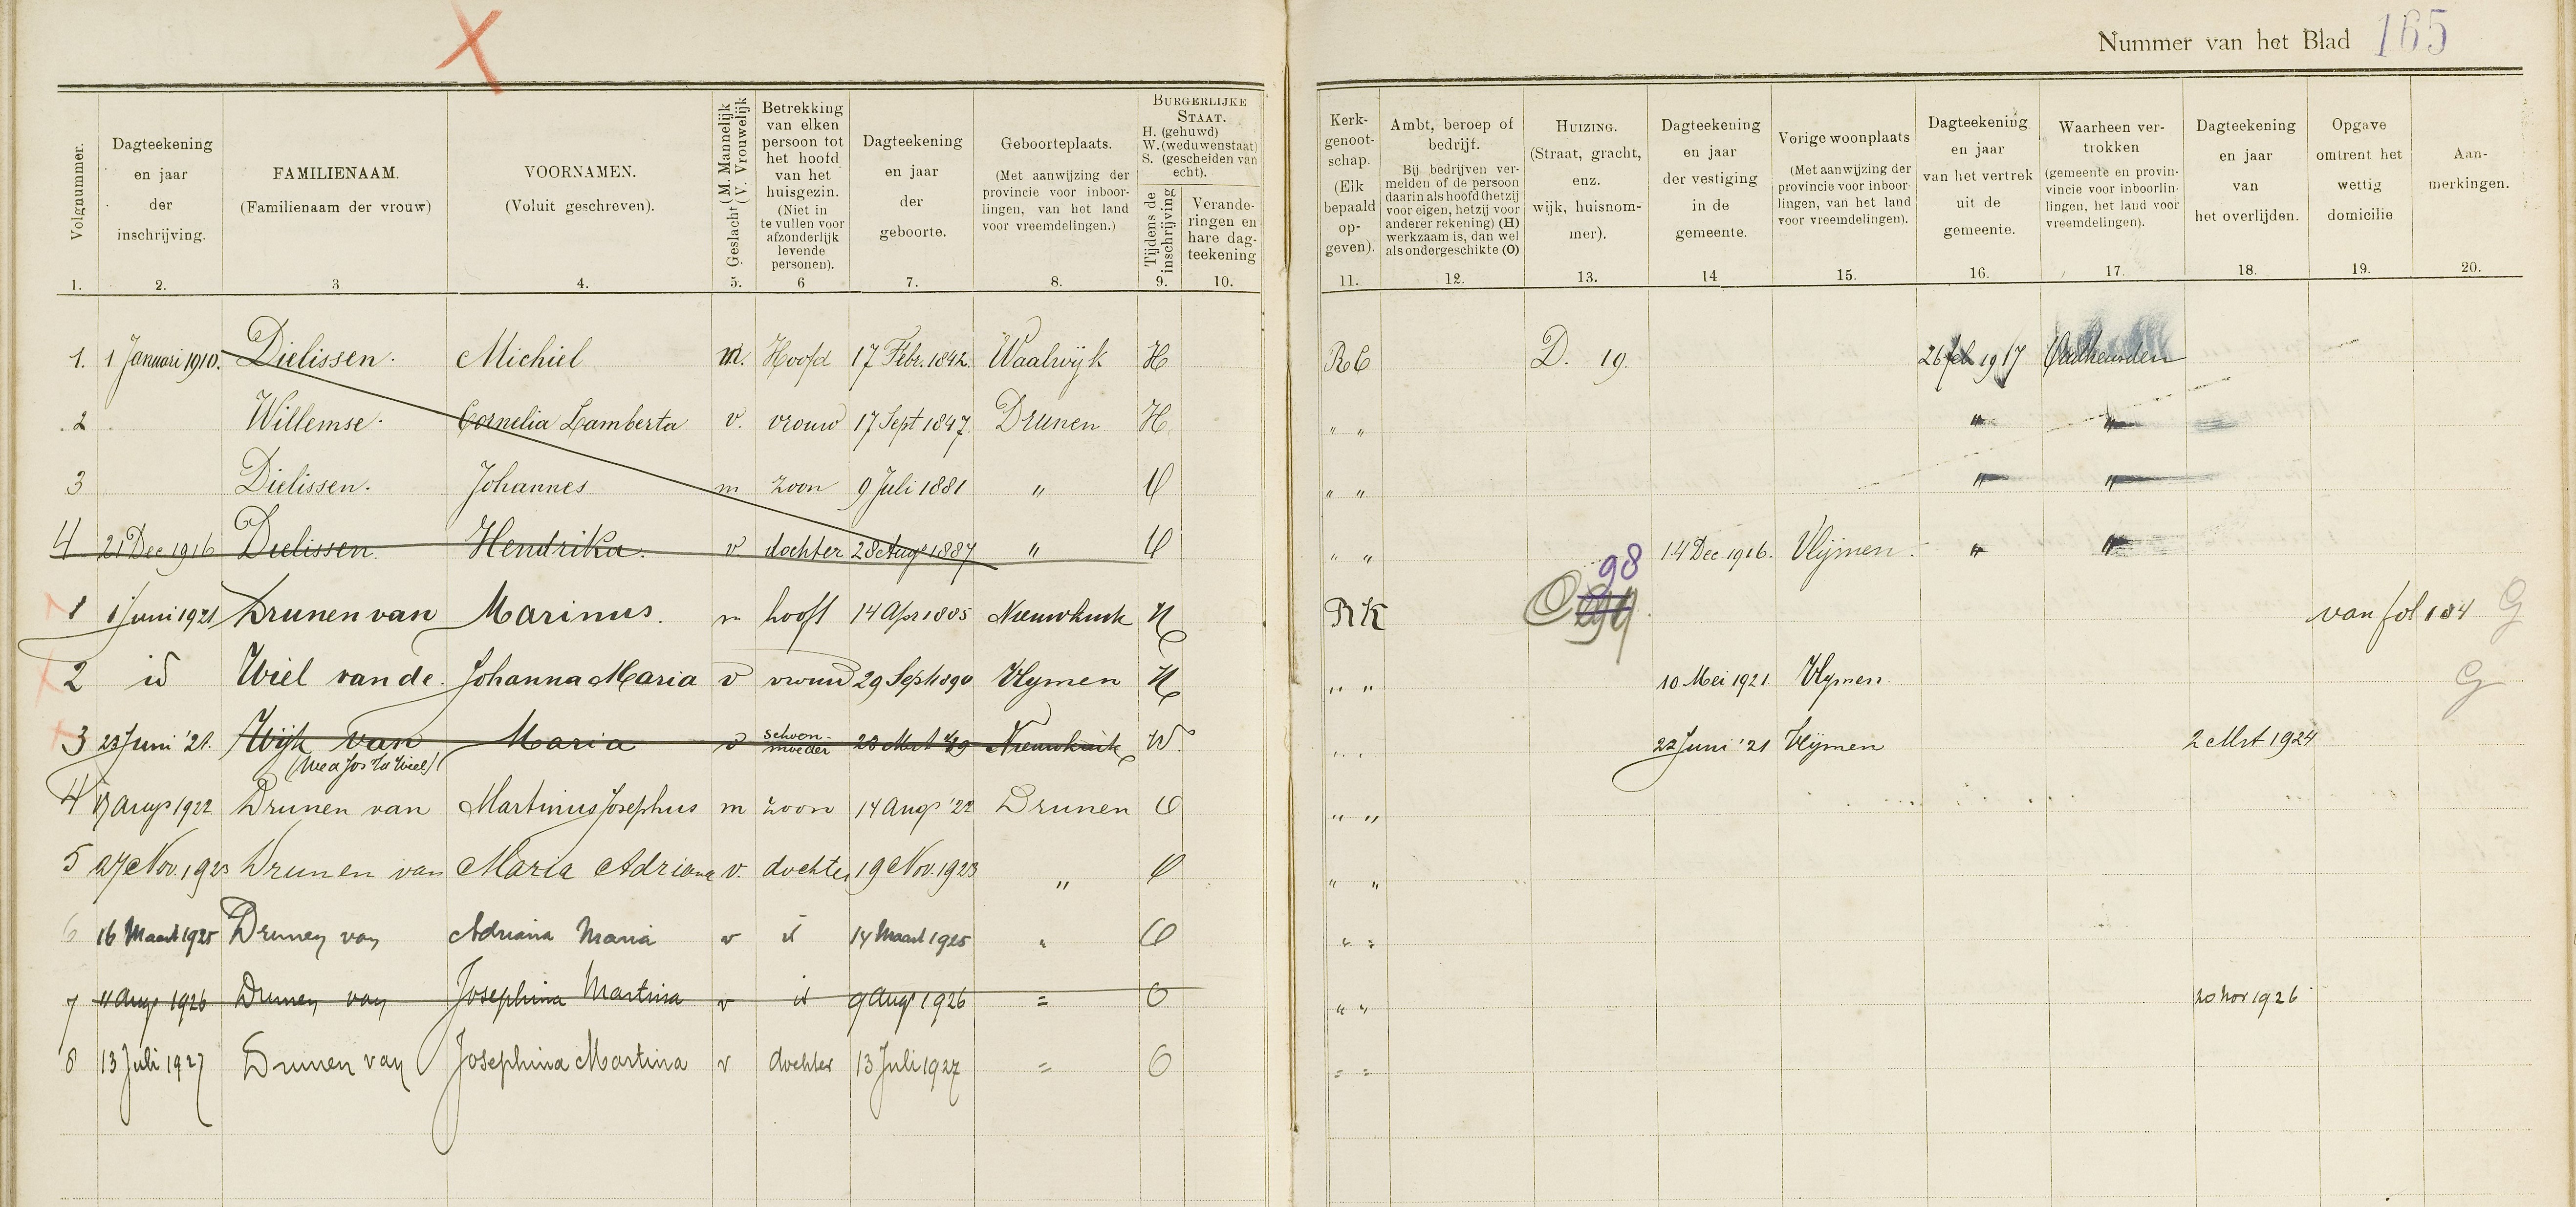 Nummer van het Blad 165
Volgnummer.
Dagteekening en jaar der inschrijving.
FAMILIENAAM. (Familienaam der vrouw)
VOORNAMEN. (Voluit geschreven).
Geslacht (M. Mannelijk (V. Vrouwelijk
Betrekking van elken persoon tot het hoofd van het huisgezin. (Niet in te vullen voor afzonderlijk levende personen).
Dagteekening en jaar der geboorte.
Geboorteplaats. (Met aanwijzing der provincie voor inboorlingen, van het land voor vreemdelingen.)
BURGERLIJKE STAAT. H. (gehuwd) W. (weduwenstaat) S. (gescheiden van echt).
Tijdens de inschrijving
Veranderingen en hare dagteekening
Kerkgenootschap. (Elk bepaald opgeven).
Ambt, beroep of bedrijf. Bij bedrijven vermelden of de persoon daarin als hoofd (hetzij voor eigen, hetzij voor anderer rekening) (H) werkzaam is, dan wel als ondergeschikte (O)
HUIZING. (Straat, gracht, enz. wijk, huisnommer).
Dagteekening en jaar der vestiging in de gemeente.
Vorige woonplaats (Met aanwijzing der provincie voor inboorlingen, van het land voor vreemdelingen).
Dagteekening en jaar van het vertrek uit de gemeente.
Waarheen vertrokken (gemeente en provinvincie voor inboorlingen, het land voor vreemdelingen).
Dagteekening en jaar van het overlijden.
Opgave omtrent het wettig domicilie
Aanmerkingen.
1. 2. 3 4. 5. 6 7. 8. 9. 10. 11. 12. 13. 14 15. 16. 17. 18. 19. 20.
1. 1 Januari 1910. Dielissen. Michiel m. Hoofd 17 Febr. 1842. Waalwijk H RC D. 19. 26 feb 1917 Oudheusden
2 Willemse. Cornelia Lamberta v. vrouw 17 Sept 1847. Drunen H. " " " "
3 Dielissen. Johannes m zoon 9 Juli 1881 " O " " " "
4 21 Dec 1916 Dielissen. Hendrika. v dochter 28 Aug 1887 " O " " 14 Dec. 1916. Vlijmen. " "
1 1 Juni 1921 Drunen van Marinus. m hooft 14 Apr 1885 Nieuwkuik H RK 98 van fol 184 G
2 id Wiel van de. Johanna Maria v vrouw 29 Sept 1890 Vlymen H " " 10 Mei 1921 Vlymen G
3 23 Juni '21. Wijk van Maria v schoonmoeder Nieuwkuik W. " " 22 Juni '21 Vlijmen 2 Mrt 1924
4 Aug 1922. Drunen van Martinus Josephus m zoon 14 Aug '22 Drunen O " "
5 27 Nov. 1923 Drunen van Maria Adriana v. dochter 19 Nov. 1923 " O " "
6 16 Maart 1925 Drunen van Adriana Maria v id 14 Maart 1925 " O " "
7 11 Aug 1926 Drunen van Josephina Martina v id 9 Aug 1926 = O " " 20 Nov 1926
8 13 Juli 1927 Drunen van Josephina Martina v dochter 13 Juli 1927 = O = =